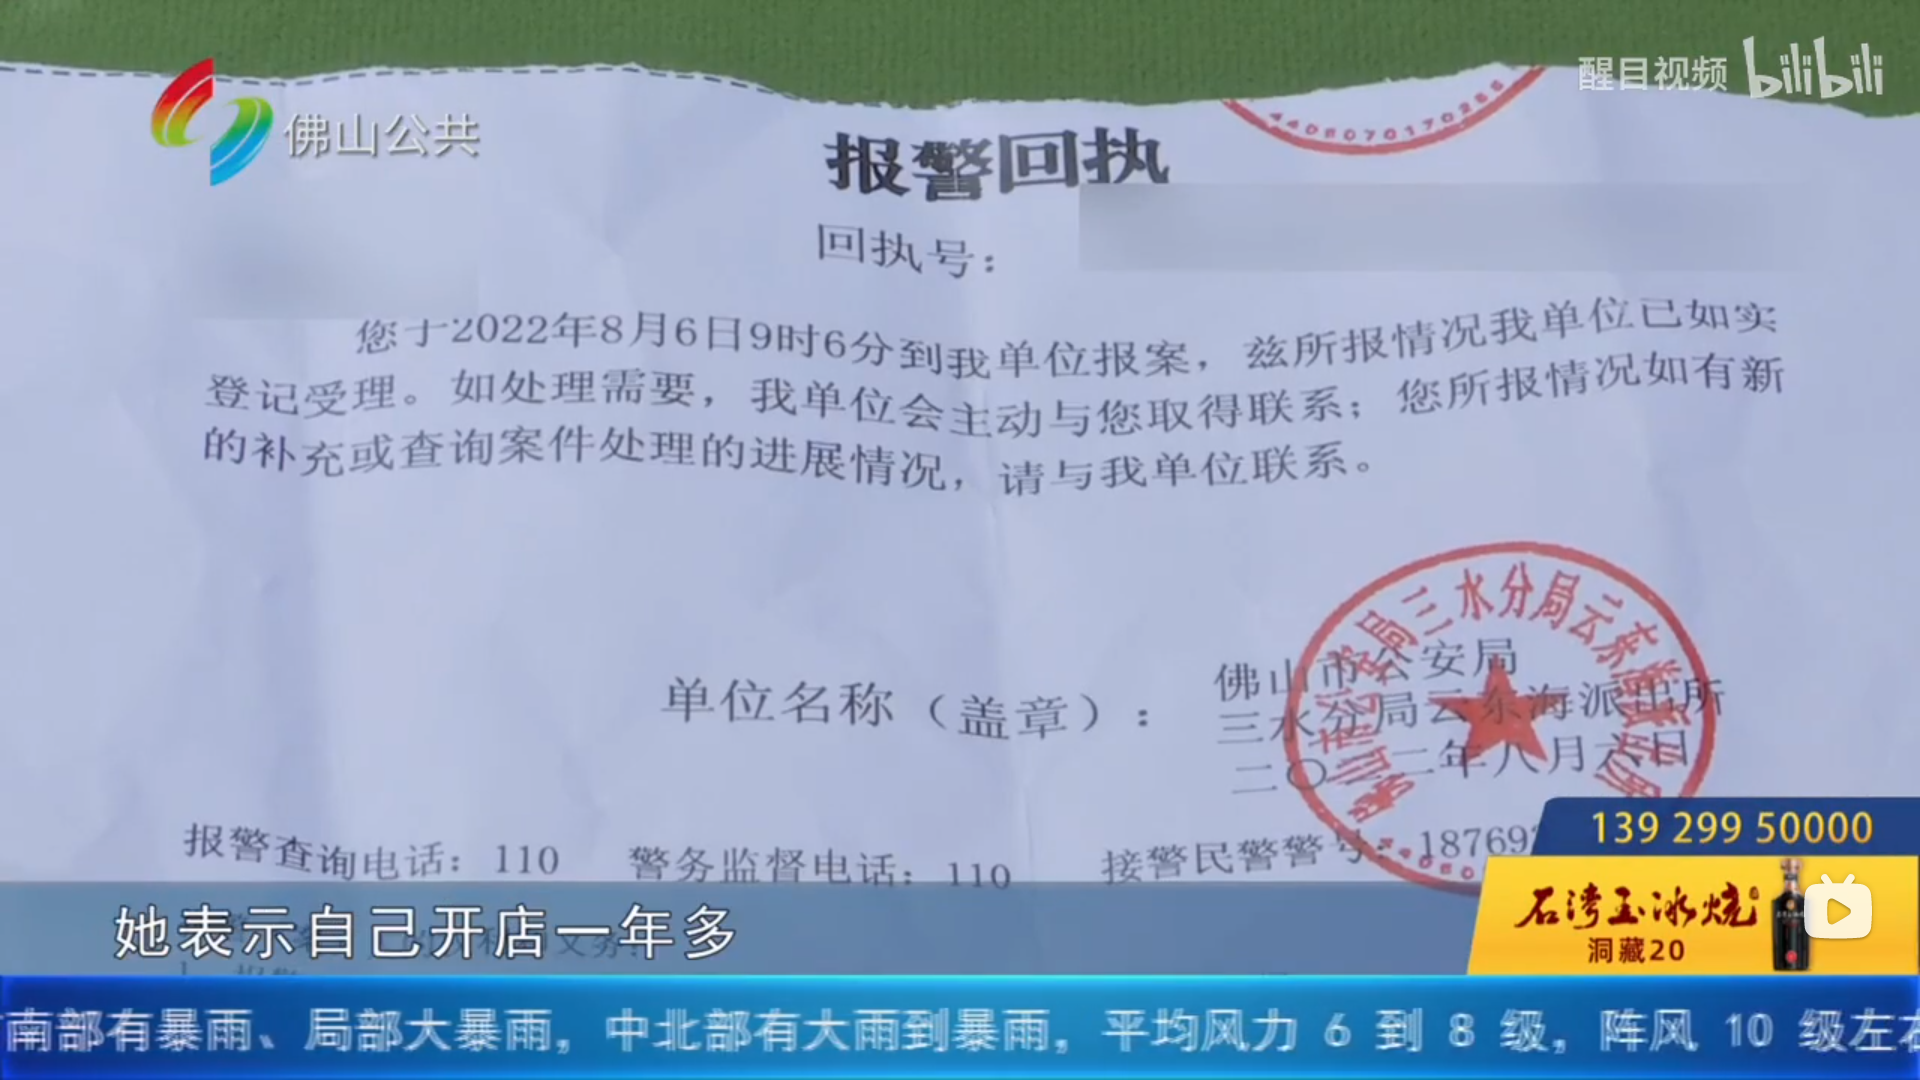 醒目视频 bilibili
佛山公共
4406070170266
报警回执
回执号：
您于2022年8月6日9时6分到我单位报案，兹所报情况我单位已如实
登记受理。如处理需要，我单位会主动与您取得联系；您所报情况如有新
的补充或查询案件处理的进展情况，请与我单位联系。
单位名称（盖章）：
佛山市公安局
三水分局云东海派出所
二〇二二年八月六日
佛山市公安局三水分局云东海派出所
报警查询电话：110 警务监督电话：110 接警民警警号：18769
139 299 50000
石湾玉冰烧
洞藏20
她表示自己开店一年多
南部有暴雨、局部大暴雨，中北部有大雨到暴雨，平均风力 6 到 8 级，阵风 10 级左右